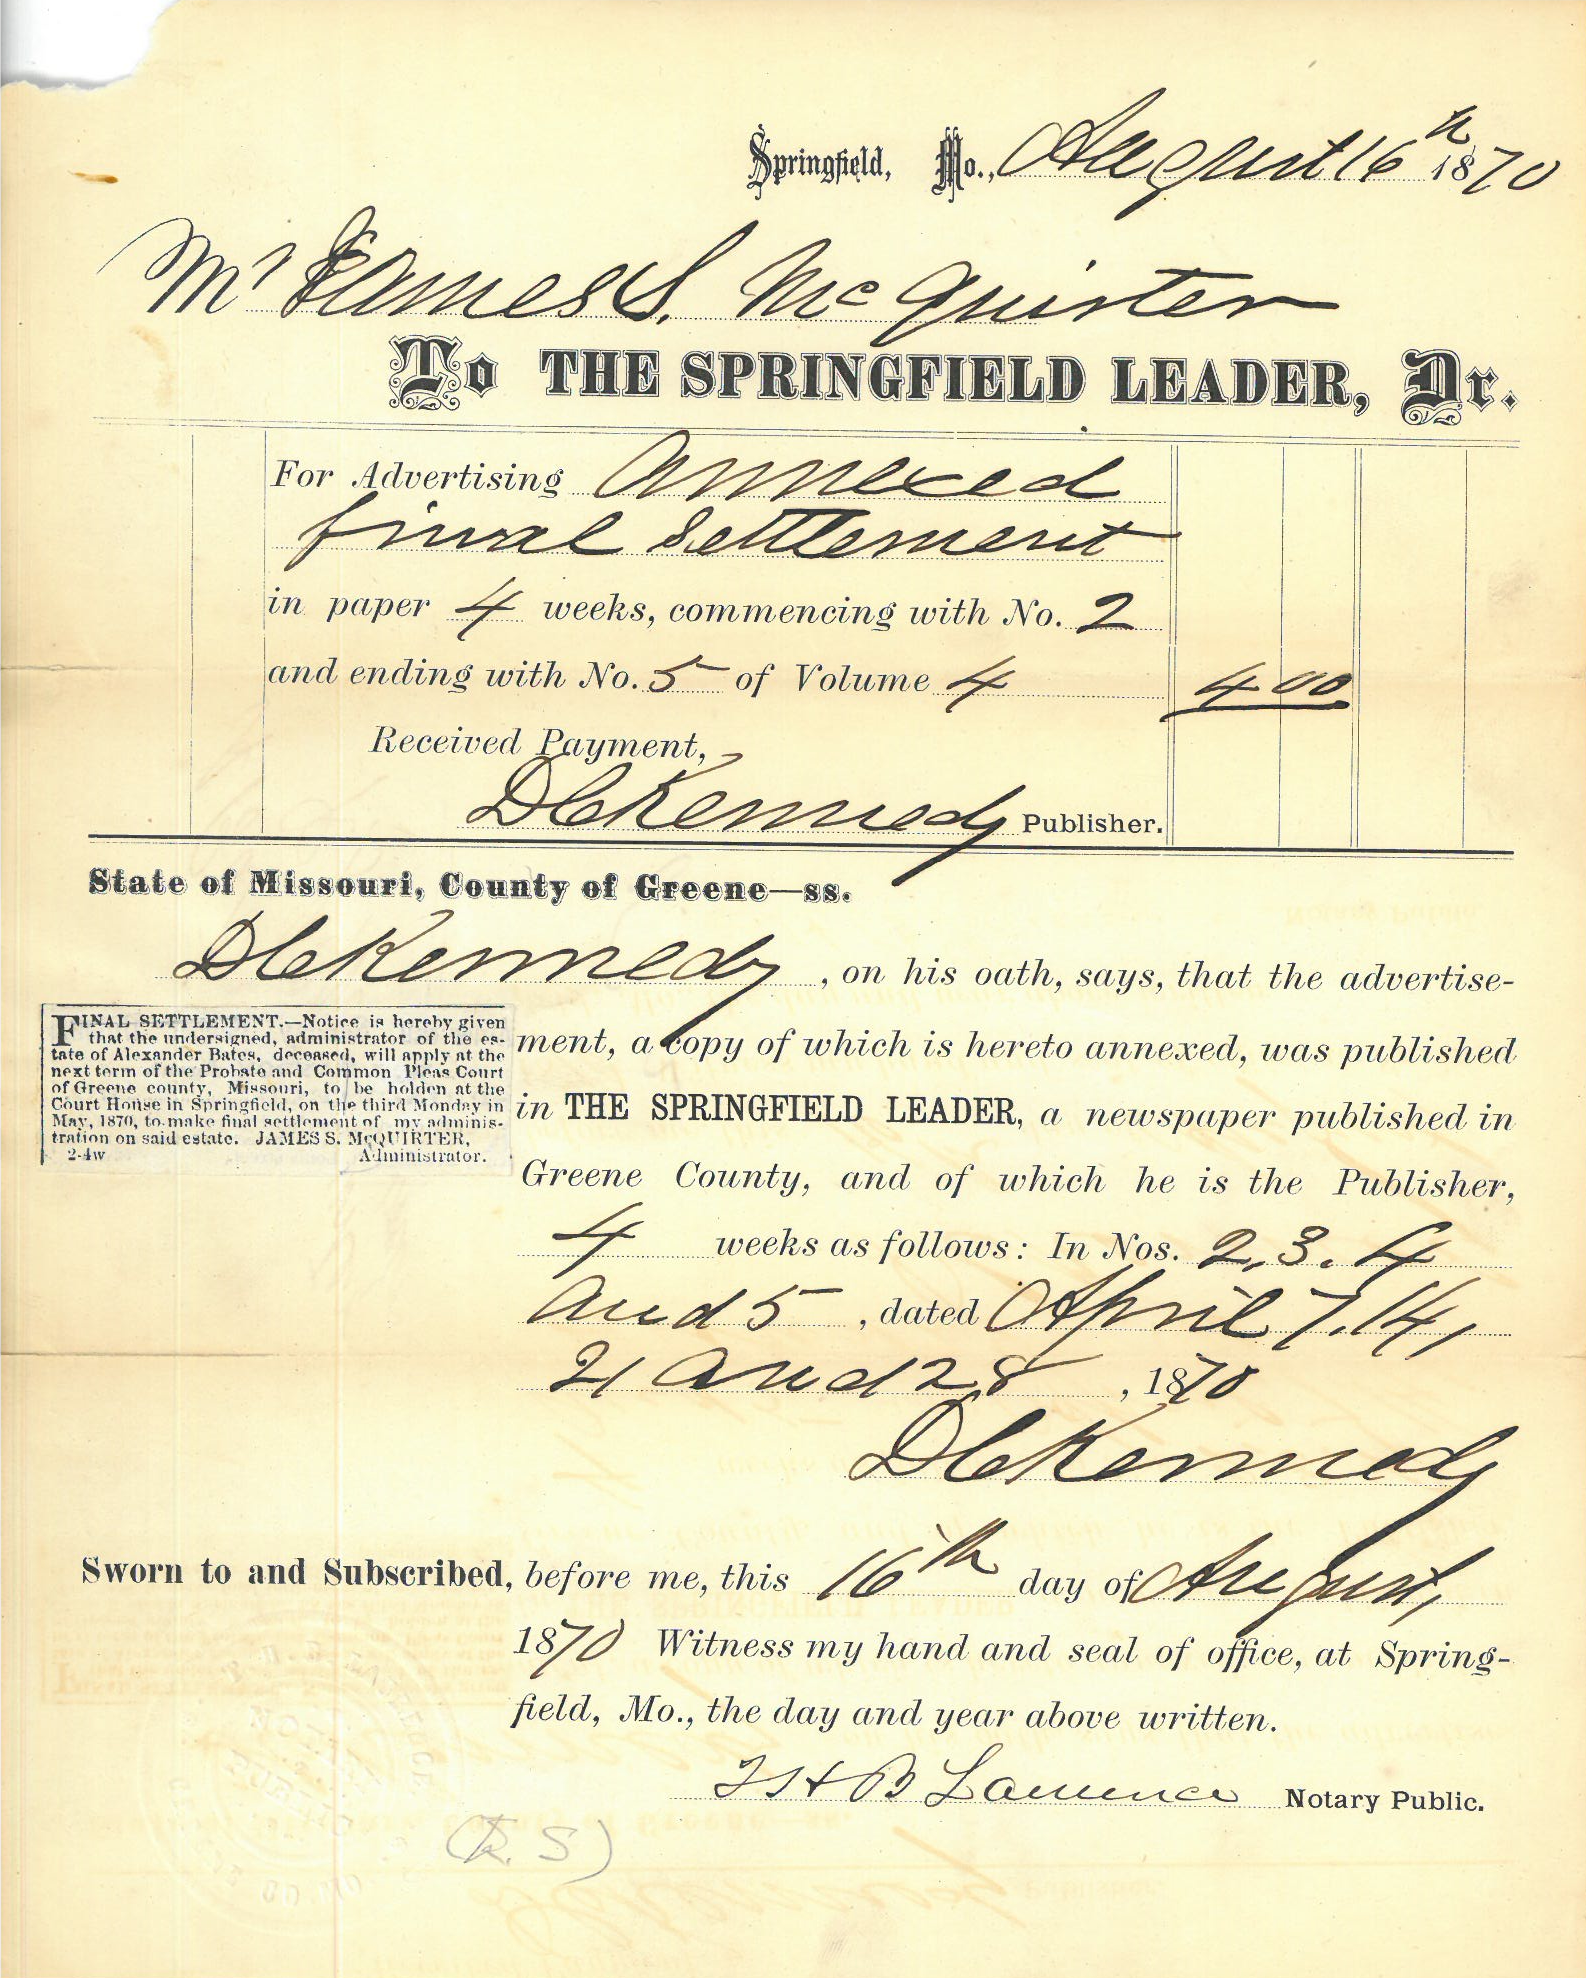 Springfield, Mo., August 16th 1870
Mr James S. McQuirter
To THE SPRINGFIELD LEADER, Dr.
For Advertising Annexed
final Settlement
in paper 4 weeks, commencing with No. 2
and ending with No. 5 of Volume 4 4 00
Received Payment,
D C Kennedy Publisher.
State of Missouri, County of Greene—ss.
D C Kennedy, on his oath, says, that the advertise-
ment, a copy of which is hereto annexed, was published
in THE SPRINGFIELD LEADER, a newspaper published in
Greene County, and of which he is the Publisher,
4 weeks as follows: In Nos. 2, 3. 4
and 5, dated April 7. 14,
21 and 28, 1870
D C Kennedy
FINAL SETTLEMENT.—Notice is hereby given
that the undersigned, administrator of the es-
tate of Alexander Bates, deceased, will apply at the
next term of the Probate and Common Pleas Court
of Greene county, Missouri, to be holden at the
Court House in Springfield, on the third Monday in
May, 1870, to make final settlement of my adminis-
tration on said estate. JAMES S. McQUIRTER,
2-4w Administrator.
Sworn to and Subscribed, before me, this 16th day of August,
1870 Witness my hand and seal of office, at Spring-
field, Mo., the day and year above written.
B Lawrence Notary Public.